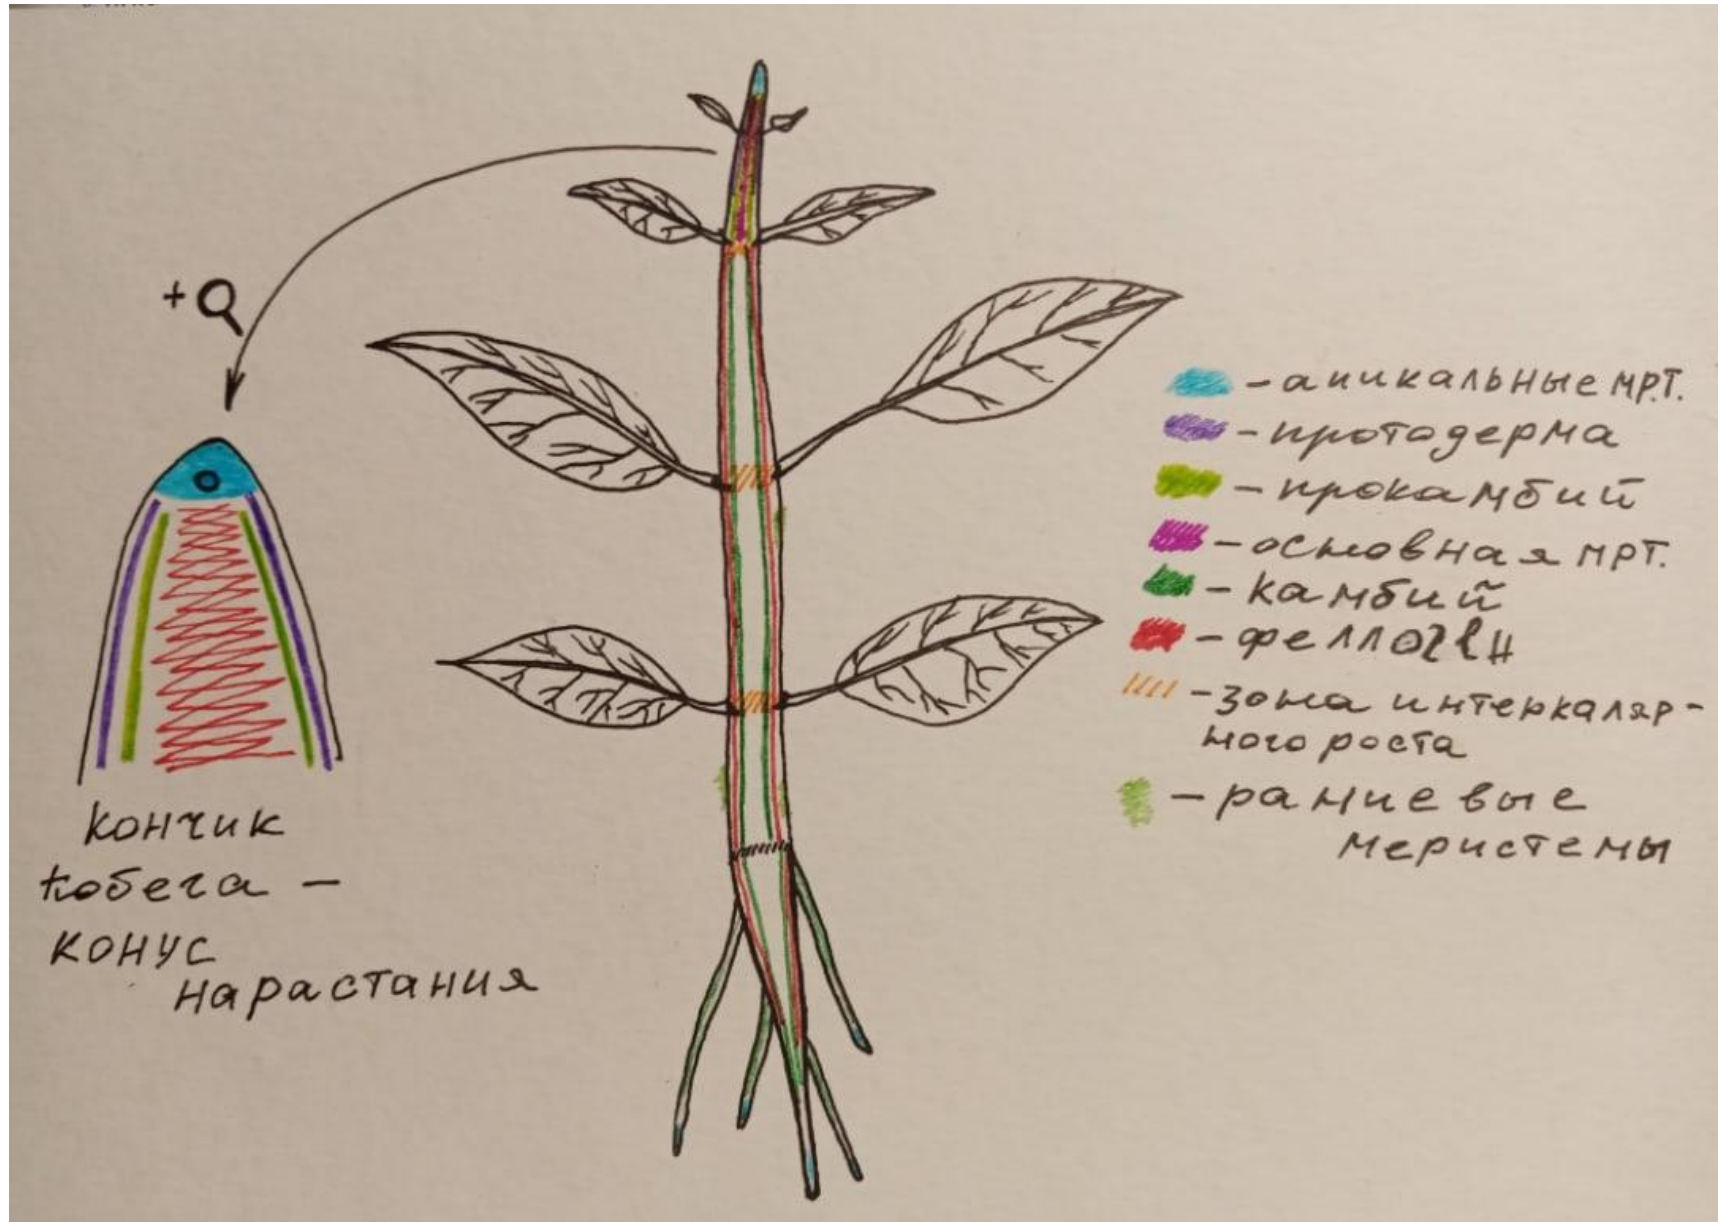 +
кончик
побега –
конус
нарастания
– апикальные мрт.
– протодерма
– прокамбий
– основная мрт.
– камбий
– феллоген
– зона интеркаляр-
ного роста
– раневые
меристемы